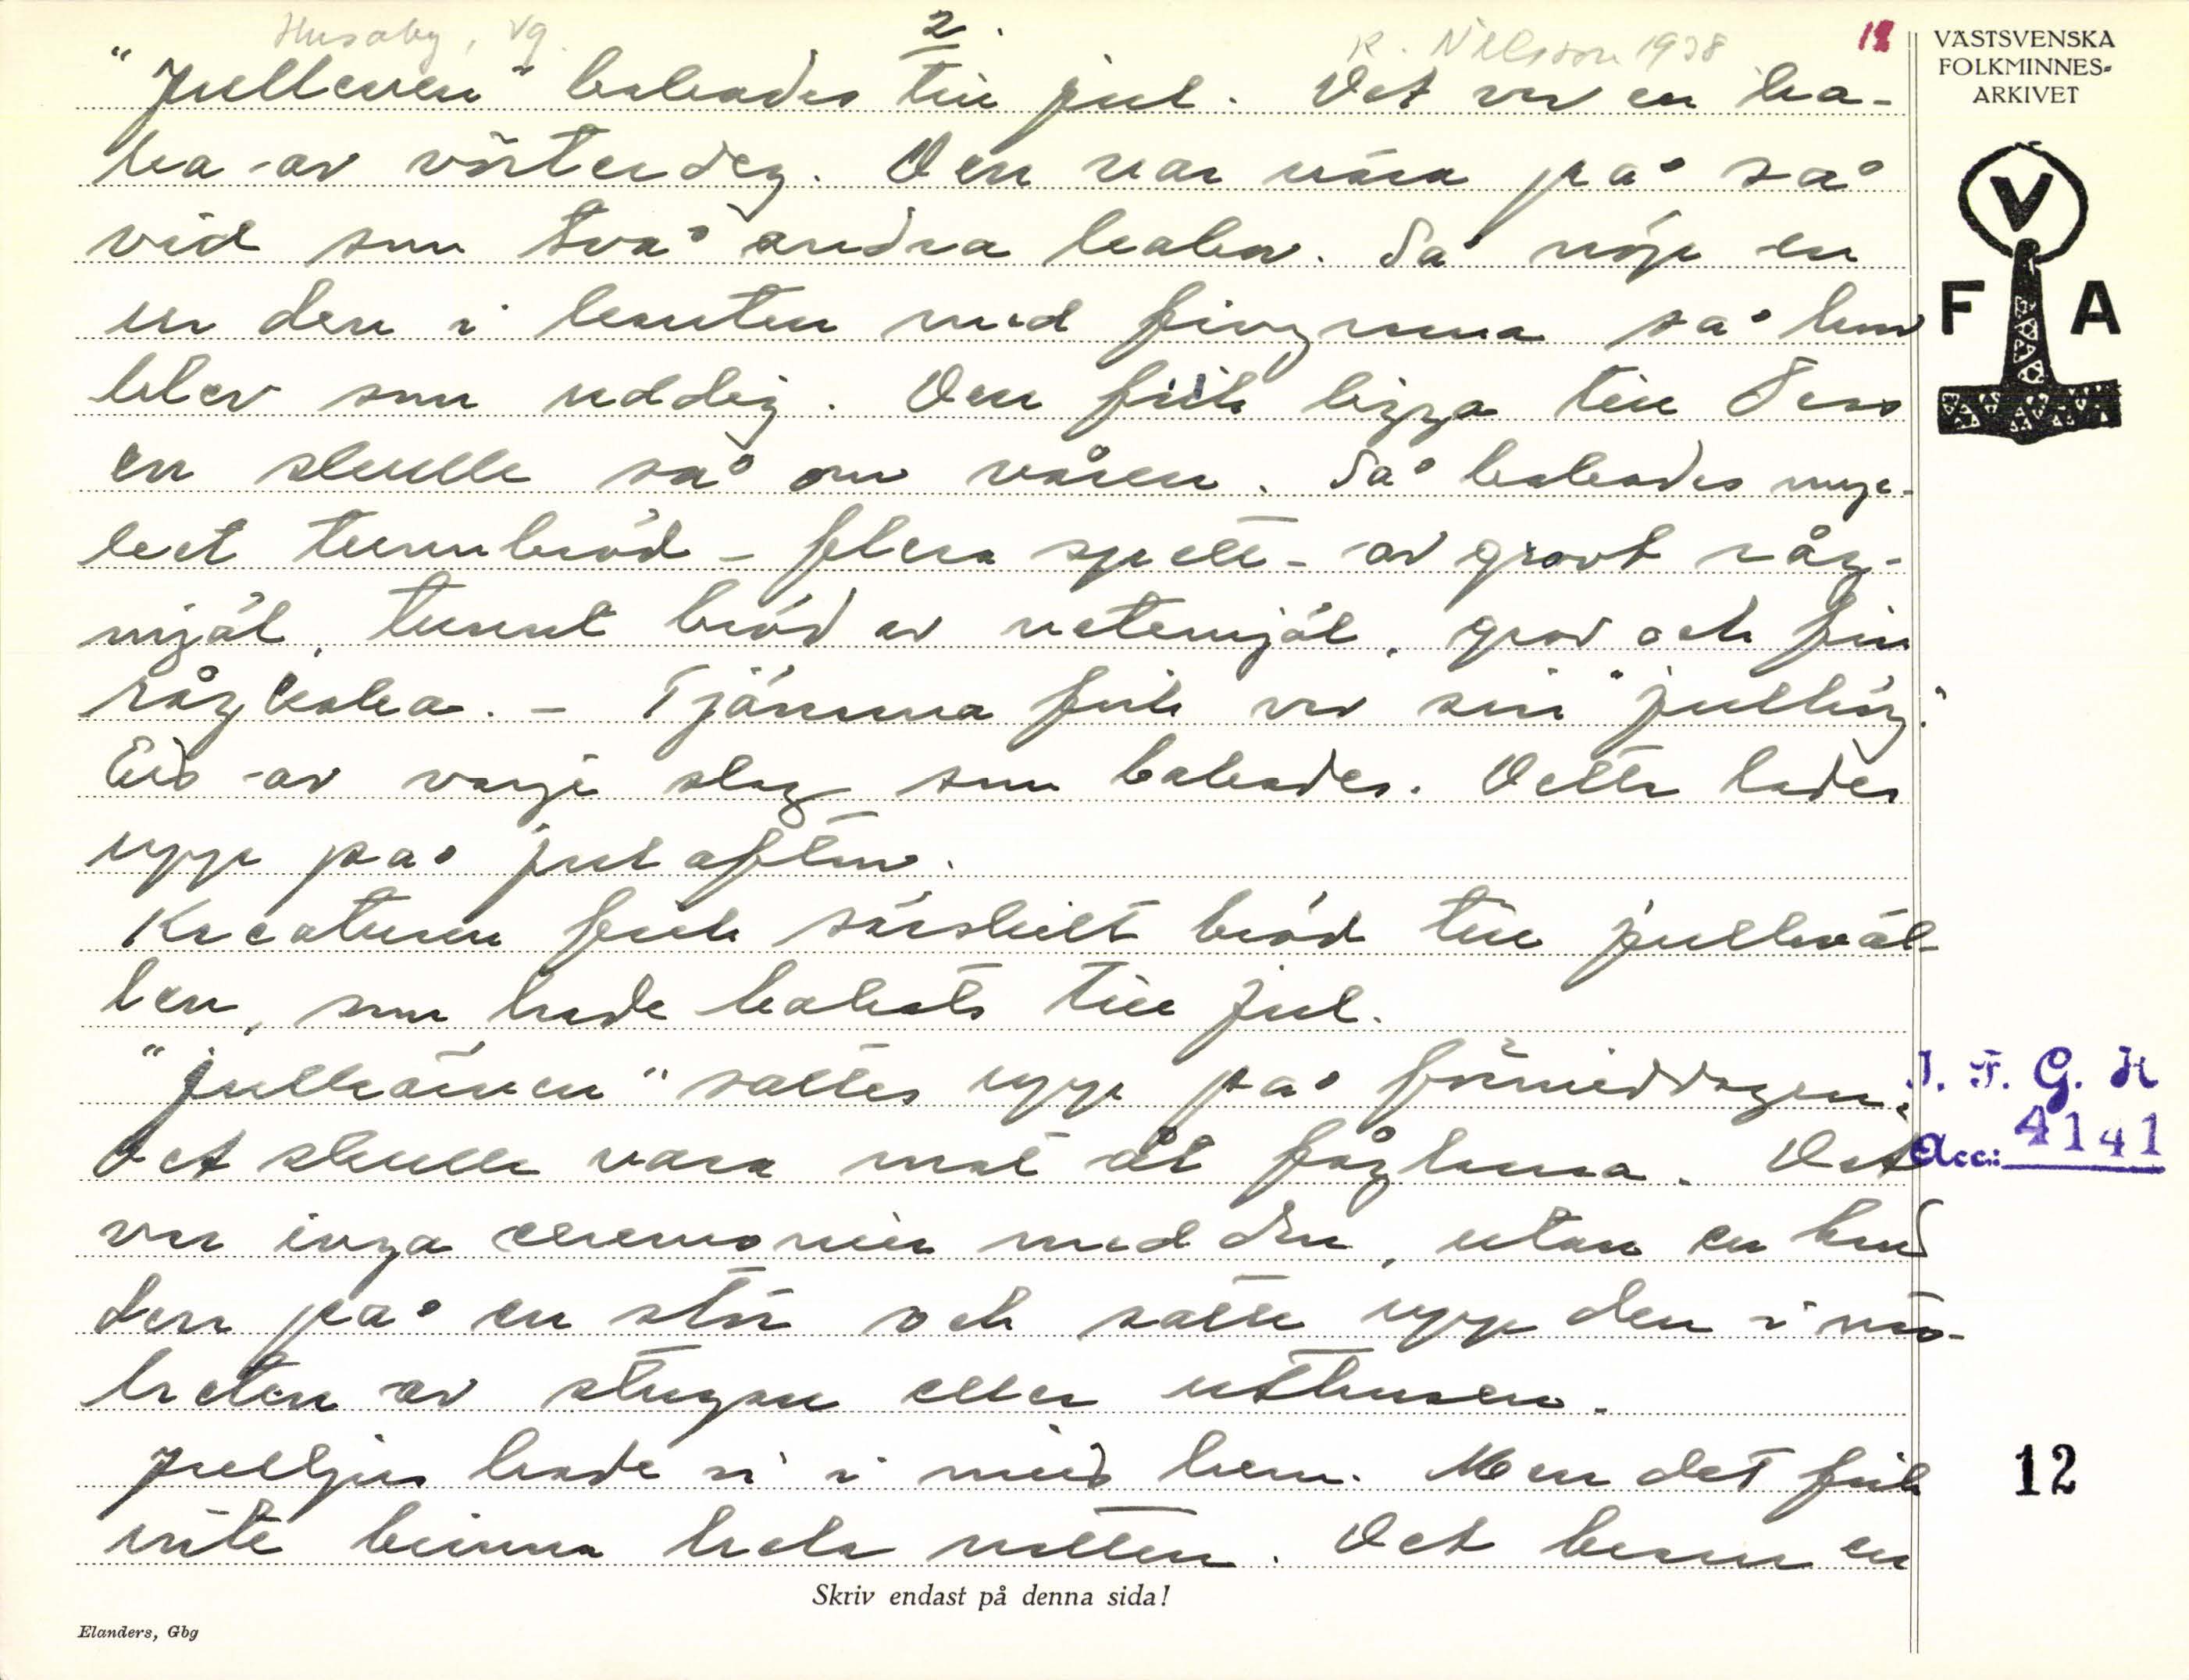 Husaby, Vg.
2.
K. Nilsson 1938
12
VÄSTSVENSKA
FOLKMINNES-
ARKIVET
"Julleven" bakades till jul. Det var en ka-
ka av vörtendeg. Den var nära på så
vid som två andra kakor. Så nöp en
ur den i kanten med fingrarna så hon
blev som uddig. Den fick ligga till dess
en skulle så om våren. Så bakades myc-
ket tunnbröd - flera spett - av grovt råg-
mjöl, tunnt bröd av vetemjöl, grov och fin
rågkaka. - Tjänarna fick var sin "julhög."
Ett av varje slag som bakades. Detta lades
upp på julafton.
Kreaturen fick särskilt bröd till julkväl-
len, som hade bakats till jul.
"Julkärven" sattes upp på förmiddagen.
Det skulle vara mat åt fåglarna. Det
var inga ceremonier med den, utan en band
den på en stör och satte upp den i när-
heten av stugan eller uthusen.
Julljus hade vi i mitt hem. Men det fick
inte brinna hela natten. Det brann en
V
F A
I. F. G. H
Acc: 4141
12
Skriv endast på denna sida!
Elanders, Gbg